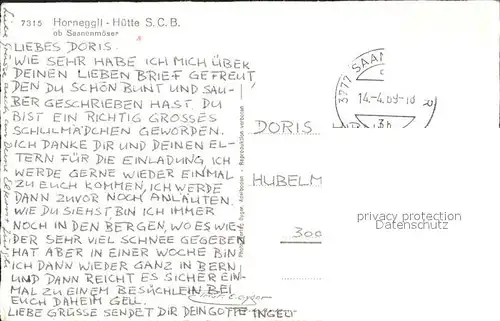 7315 Horneggli - Hütte S.C.B.
ob Saanenmöser
LIEBES DORIS.
WIE SEHR HABE ICH MICH ÜBER
DEINEN LIEBEN BRIEF GEFREUT
DEN DU SCHÖN BUNT UND SAU-
BER GESCHRIEBEN HAST. DU
BIST EIN RICHTIG GROSSES
SCHULMÄDCHEN GEWORDEN.
ICH DANKE DIR UND DEINEN EL-
TERN FÜR DIE EINLADUNG, ICH
WERDE GERNE WIEDER EINMAL
ZU EUCH KOMMEN, ICH WERDE
DANN ZUVOR NOCH ANLÄUTEN.
WIE DU SIEHST BIN ICH IMMER
NOCH IN DEN BERGEN, WO ES WIE-
DER SEHR VIEL SCHNEE GEGEBEN
HAT ABER IN EINER WOCHE BIN
ICH DANN WIEDER GANZ IN BERN
UND DANN REICHT ES SICHER EIN-
MAL ZU EINEM BESÜCHLEIN BEI
EUCH DAHEIM GELL.
LIEBE GRÜSSE SENDET DIR DEIN GOTTE INGELI
Reproduktion verboten
3777 SAAN
14.-4.69-18
DORIS
HUBELM
300
privacy protection
Datenschutz